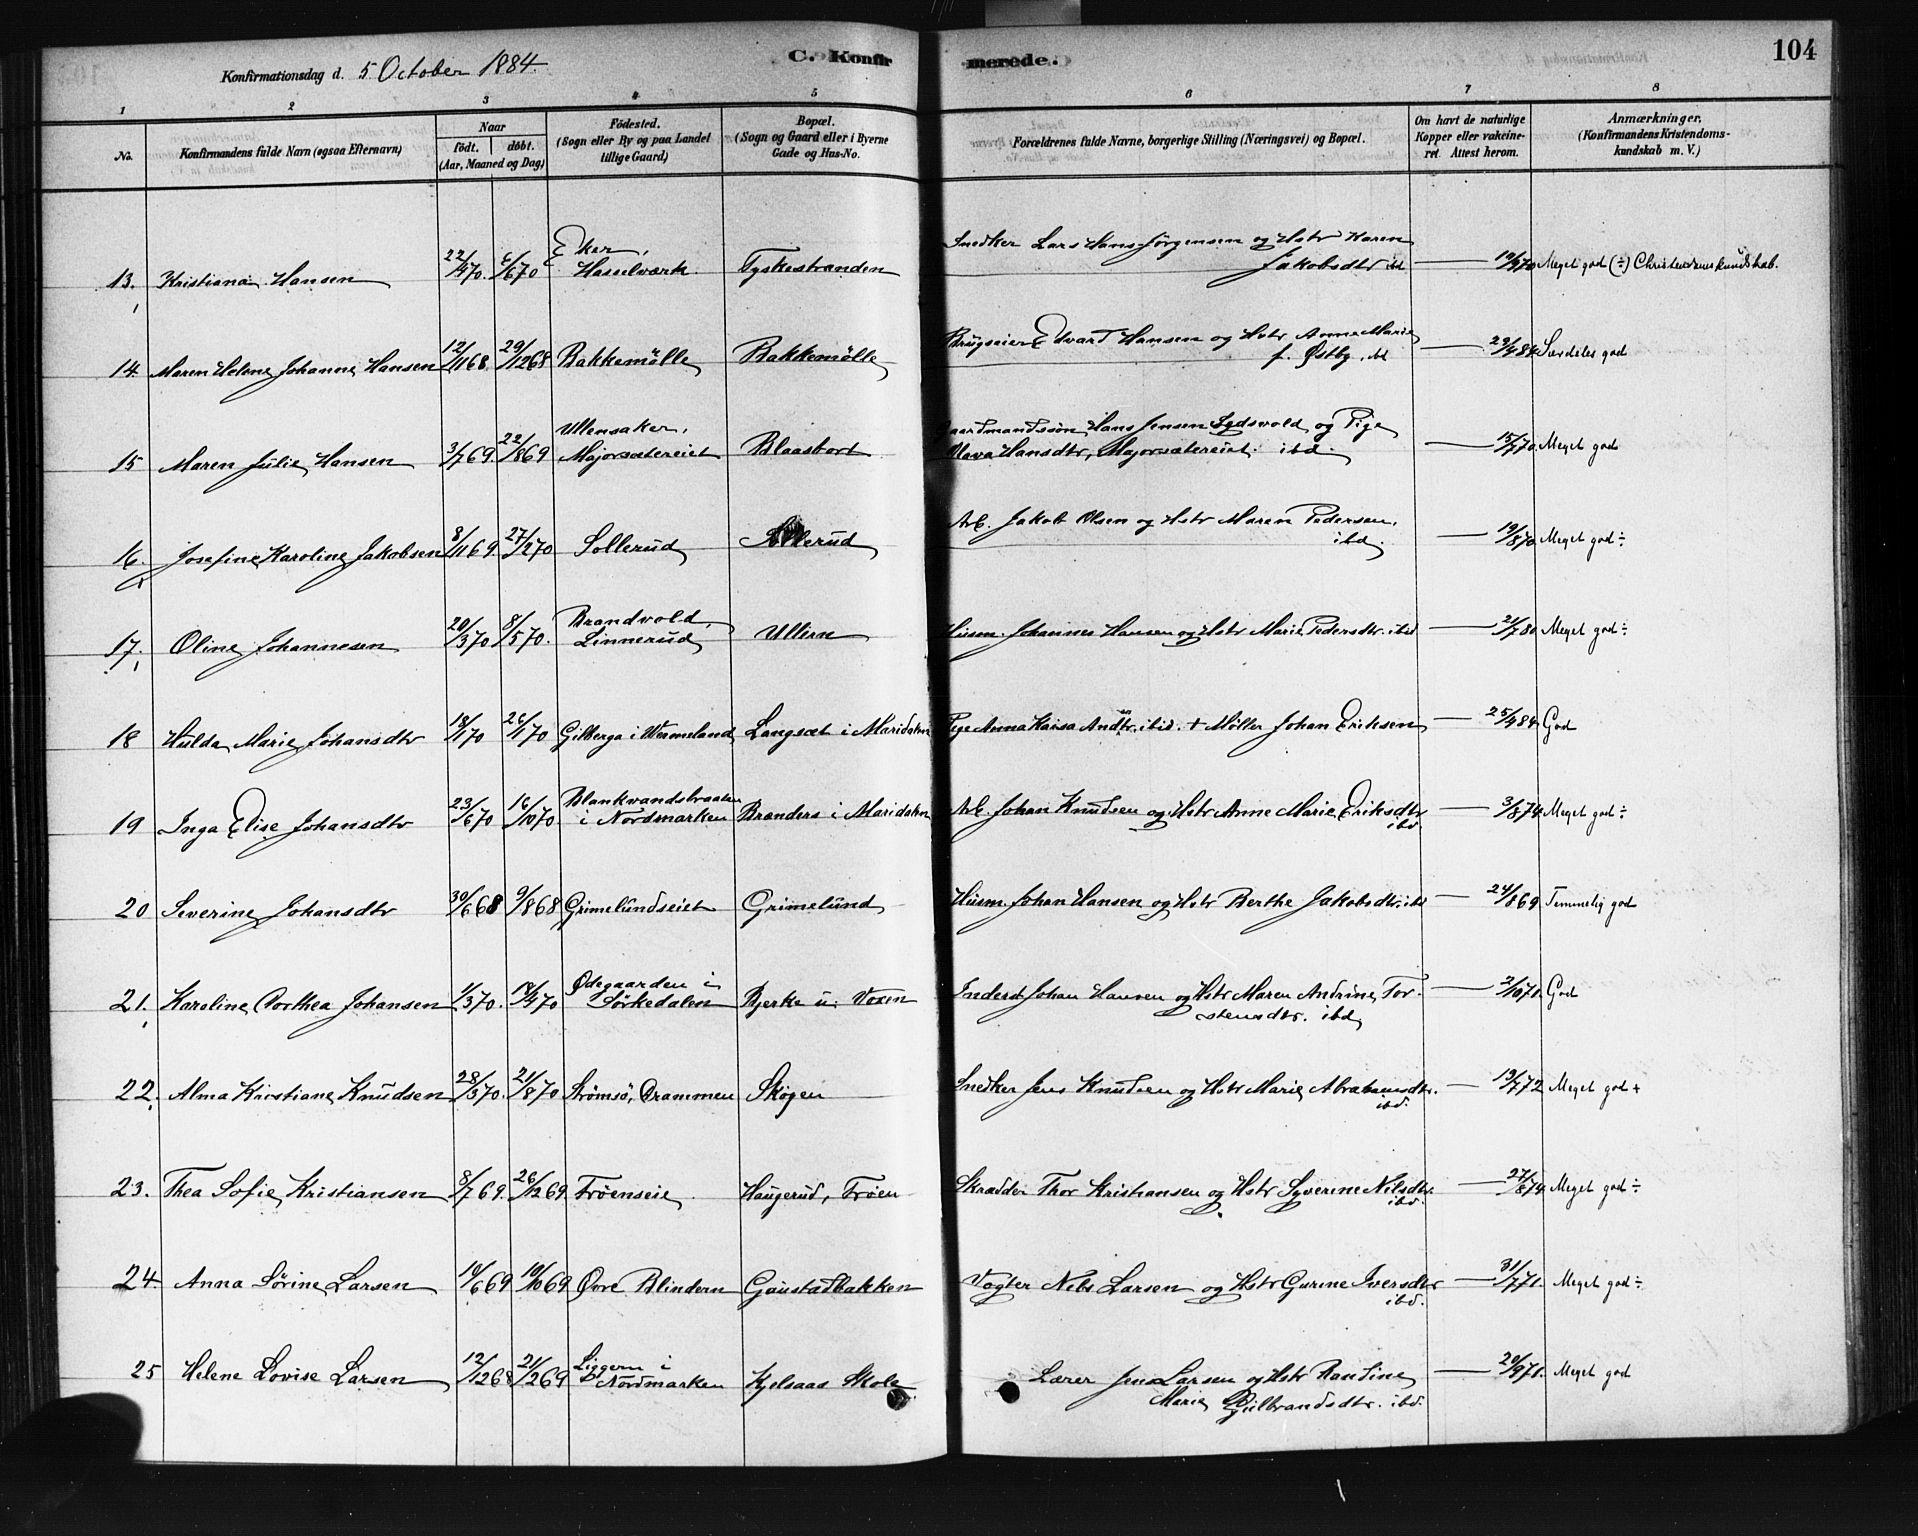 Konfirmationsdag d. 5 October 1884.
C. Konfir
merede.
104
1 2 3 4 5 6 7 8
No.
Konfirmandens fulde Navn (ogsaa Efternavn)
Naar
födt. döbt.
(Aar, Maaned og Dag)
Födested.
(Sogn eller By og paa Landet
tillige Gaard)
Bopæl.
(Sogn og Gaard eller i Byerne
Gade og Hus-No.
Forældrenes fulde Navne, borgerlige Stilling (Næringsvei) og Bopæl.
Om havt de naturlige
Kopper eller vakcine-
ret. Attest herom.
Anmærkninger.
(Konfirmandens Kristendoms-
kundskab m. V.)
Eker, Snedker Lars Hans Jörgensen og Hstr Karen
13. Kristiana Hansen 22/4 70. 6/6 70 Hasselværk Tyskestranden Jakobsdtr ibd — 19/9 70 Meget god (÷) Christendomskundskab.
Brugseier Edvard Hansen og Hstr Anne Marie
14. Maren Helene Johanne Hansen 12/11 68. 29/12 68 Bakkemölle Bakkemölle f. Østby. ibd — 29/4 84 Særdeles god
Ullensaker, Gaardmandssön Hans Jensen Lydsvold og Pige
15 Maren Julie Hansen 3/7 69. 22/8 69 Majorsætereiet Blaasbort Olava Hansdtr, Majorsætereiet. ibd. — 15/7 70. Meget god
Arb. Jakob Olsen og Hstr Maren Pedersen.
16. Josefine Karoline Jakobsen 8/11 69. 27/2 70 Sollerud Sollerud ibd. — 19/8 70 Meget god ÷
Brandvold,
17. Oline Johannesen 20/3 70 8/5 70. Linnerud Ullern Husm. Johannes Hansen og Hstr Marie Pedersdtr. ibid — 2/7 80. Meget god ÷
18 Hulda Marie Johansdtr 18/1 70 26/1 70 Gilberga i Wermeland Langsæt i Maridalen Pige Anna Kaisa Andtr. ibid. + Møller Johan Eriksen — 25/4 84. God
Blankvandsbraaten
19 Inga Elise Johansdtr 23/6 70 16/10 70. i Nordmarken Branders i Maridalen Arb. Johan Knudsen og Hstr Anne Marie Eriksdtr — 3/8 74. Meget god ÷
ibd.
20 Severine Johansdtr 30/6 68 9/8 68 Grimelundseiet Grimelund Husm. Johan Hansen og Hstr Berthe Jakobsdtr. ibd — 24/8 69 Temmelig god
Ødegaarden i
21. Karoline Dorthea Johansen 1/3 70. 18/4 70 Sörkedalen Bjerke u. Voxen Inderst Johan Hansen og Hstr Maren Andrine Tor- — 2/10 71. God
stensdtr. ibd
22. Alma Kristiane Knudsen 28/3 70. 21/8 70 Strömsö, Drammen Skogen Snedker Jens Knudsen og Hstr Marie Abrahamsdtr. — 13/7 72 Meget god +
ibd.
23. Thea Sofie Kristiansen 8/7 69. 26/12 69. Fröenseie Haugerud, Fröen Skrædder Thor Kristiansen og Hstr Syverine Nilsdtr. — 27/8 74. Meget god ÷
ibd.
24. Anna Sörine Larsen 14/6 69 10/10 69 Övre Blindern Gaustadbakken Vogter Nils Larsen og Hstr Gurine Iversdtr — 31/7 71. Meget god ÷
ibd.
Liggern i
25 Helene Lovise Larsen 12/12 68 21/2 69 Nordmarken Kjelsaas Skole Lærer Jens Larsen og Hstr Randine — 20/9 71. Meget god
Marie Gulbrandsdtr. ibd.